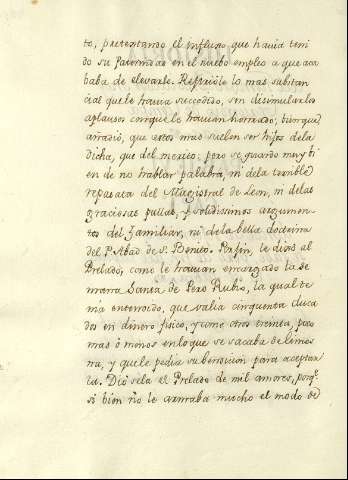 to, pretextando el influxo, que havia teni
do su Paternidad en el nuebo empleo a que aca
baba de elevarle. Refirióle lo mas substan
cial que le havia succedido, sin disimular los
aplausos con que lo havian honrado, bien que
añadió, que estos mas suelen ser hijos de la
dicha, que del merito; pero se guardó muy bi
en de no hablar palabra, ni de la terrible
repasata del Magistral de Leon, ni de las
graciosas pullas, y solidisimos argumen-
tos del familiar, ni de la bella doctrina
del P. Abad de S. Benito. En fin, le dixo al
Prelado, como le havian encargado la Se
mana Santa de Pero Rubio, la qual te
nia entendido, que valia cinquenta duca
dos en dinero fisico, y como otros treinta, poco
mas ó menos en lo que se sacaba de limos
na, y que le pedia su bendicion para aceptar
la. Dió sela el Prelado de mil amores, porq.e
si bien no le armaba mucho el modo de